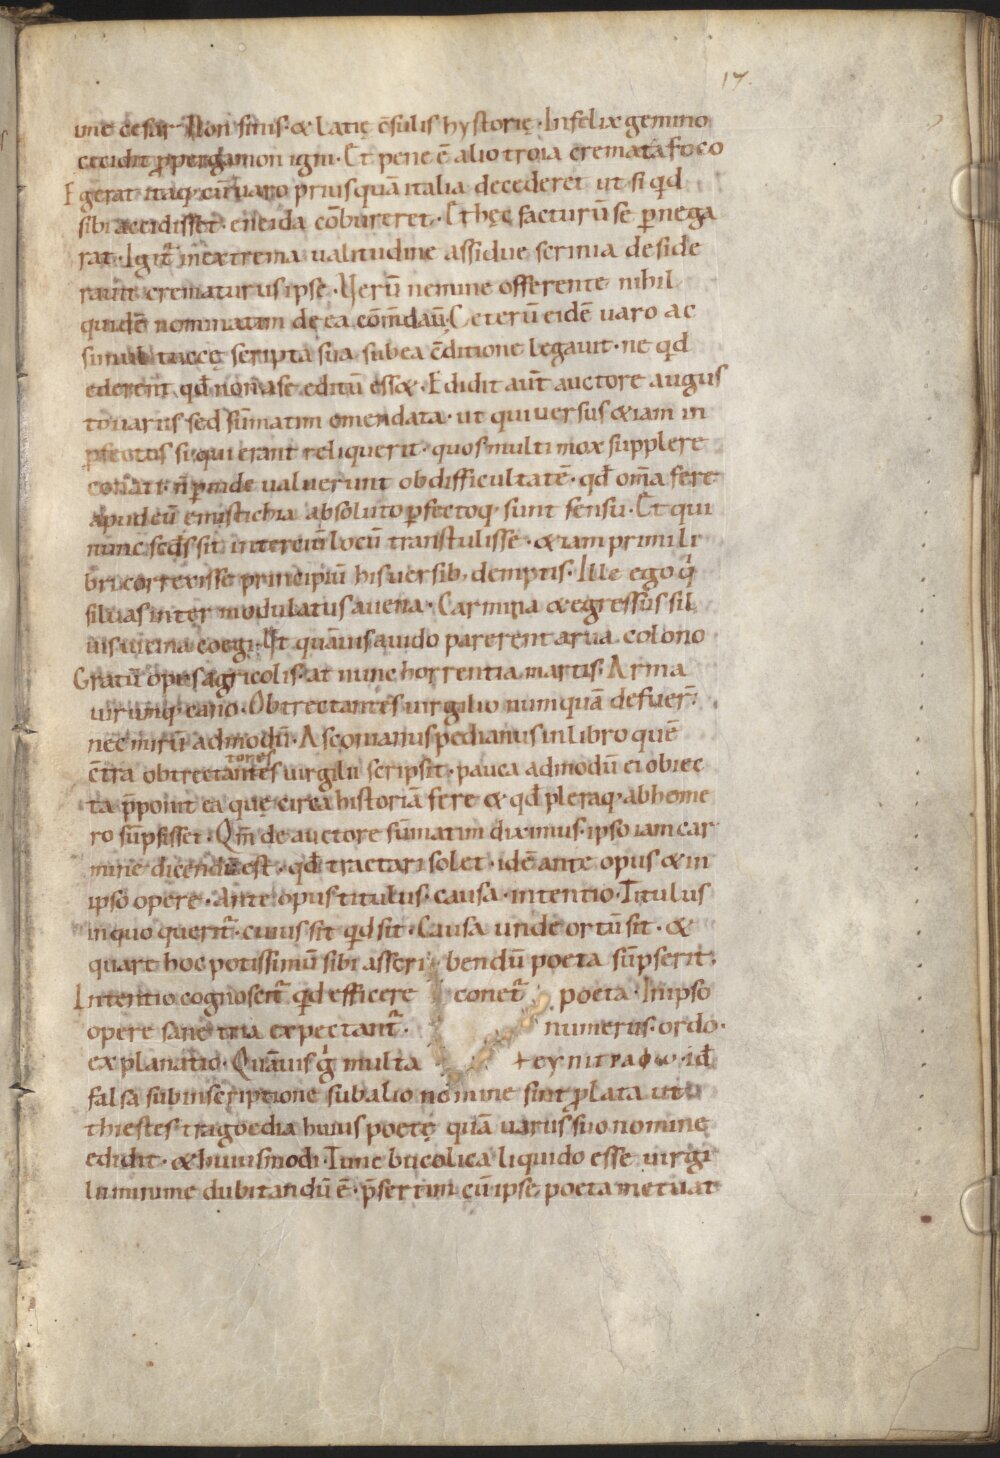 17.
une cesar Non sinis· & latię c̄sulis hystorię· Infelix gemino
cecidit ꝓpergamon igni· Et pene ē alio troia cremata foco
Egerat itaq; cū uaro priusquā italia decederet ut si qd
sibi accidisset· eneida cōbureret· Et hęc facturū se p̱nega
rat· Igit̄ in extrema ualitudine assidue scrinia deside
rauit crematurus ipse· Verū nemine offerente nihil
quidē nominatim de ea cōm̄dauit· Ceterū eidē uaro ac
simul tuccę scripta sua sub ea c̄ditione legauit· ne qd
ederent qđ non a se editū ess&· Edidit aut̄ auctore augus
to uarius sed sūmatim omendata· ut qui uersus &iam in
p̱fectus siqui erant reliquerit· quos multi mox supplere
conati· n̄ p̱inde ualuerunt ob difficultatē· qđ om̄a fere
apud eū emistichia absoluto p̱fectoq; sunt sensu· Et qui
nunc secđs sit in terciū locū transtulisse· &iam primi li
bri correxisse principiū his uersib; demptis· Ille ego q̇
siluas inter modulatus auena· Carmina & egressus sil
uis uicina coegi· Ut quāuis auido parerent arua colono
Gratū opus agricolis· at nunc horrentia martis· Arma
uirumq; cano· Obtrectantes uirgilio numquā defuer̄·
nec mirū admodū· Asconianus pedianus in libro quē
c̄tra obtrectantes uirgilii scripsit· pauca admodū ei obiec
tores
ta p̄ponit ea quę circa historiā fere & qđ pleraq; ab home
ro sūpsisset· Qm̄ de auctore sūmatim diximus· ipso iam car
mine dicendū est· qđ tractari solet· idē ante opus & in
ipso opere· Ante opus titulus· causa· intentio· Titulus
in quo querit̄· cuius sit qd sit· Causa unde ortū sit· &
quare hoc potissimū sibi asseri bendū poeta sūpserit·
Intentio cognoscit̄ qd efficere conet̄ poeta· In ipso
opere sane tria expectant̄· numerus· ordo·
explanatio· Quāuis ġ multa +eynitpaφω· iđ
falsa sub inscriptione sub alio nomine sint ꝓlata ut
thiestes tragoedia huius poetę quā uarius suo nomine
edidit· & huiusmodi· Tunc bucolica liquido esse uirgi
lii minime dubitandū ē· p̄sertim cū ipse poeta metuat